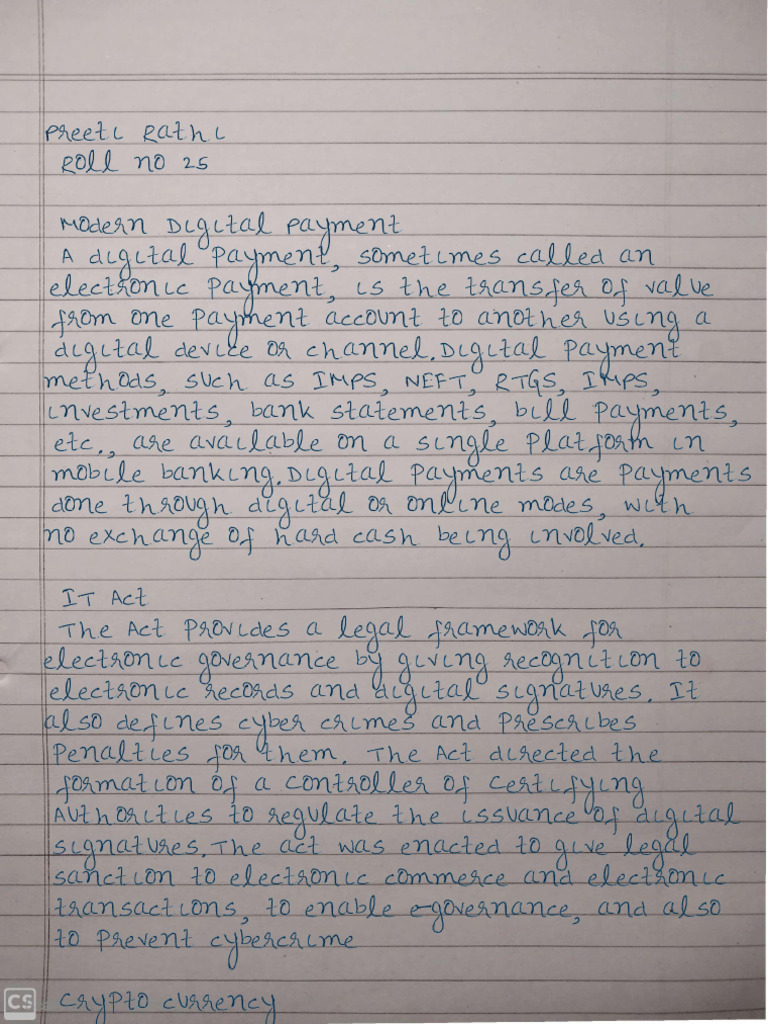 Preeti Rathi
Roll no 25
Modern Digital payment
A digital payment, sometimes called an
electronic payment, is the transfer of value
from one payment account to another using a
digital device or channel. Digital payment
methods, such as IMPS, NEFT, RTGS, IMPS,
investments, bank statements, bill payments,
etc., are available on a single platform in
mobile banking. Digital payments are payments
done through digital or online modes, with
no exchange of hard cash being involved.
IT Act
The Act provides a legal framework for
electronic governance by giving recognition to
electronic records and digital signatures. It
also defines cyber crimes and prescribes
penalties for them. The Act directed the
formation of a controller of certifying
Authorities to regulate the issuance of digital
signatures. The act was enacted to give legal
sanction to electronic commerce and electronic
transactions, to enable e-governance, and also
to prevent cybercrime
Crypto currency
CS